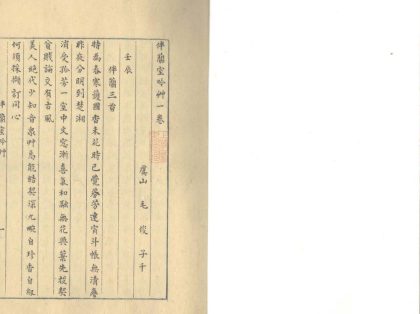 伴蘭室吟艸一卷
虞山 毛 俊 子千
壬辰
伴蘭三首
特為春寒護國香未花時已覺芬芳連宵斗帳無清夢
昨夜分明到楚湘
消受孤芳一室中文窓漸喜氣和融無花與葉先援契
貧賤論交有古風
美人絕代少知音衆艸烏能結契深九畹自珍香自
何須採擷訂同心
伴蘭室吟艸 一